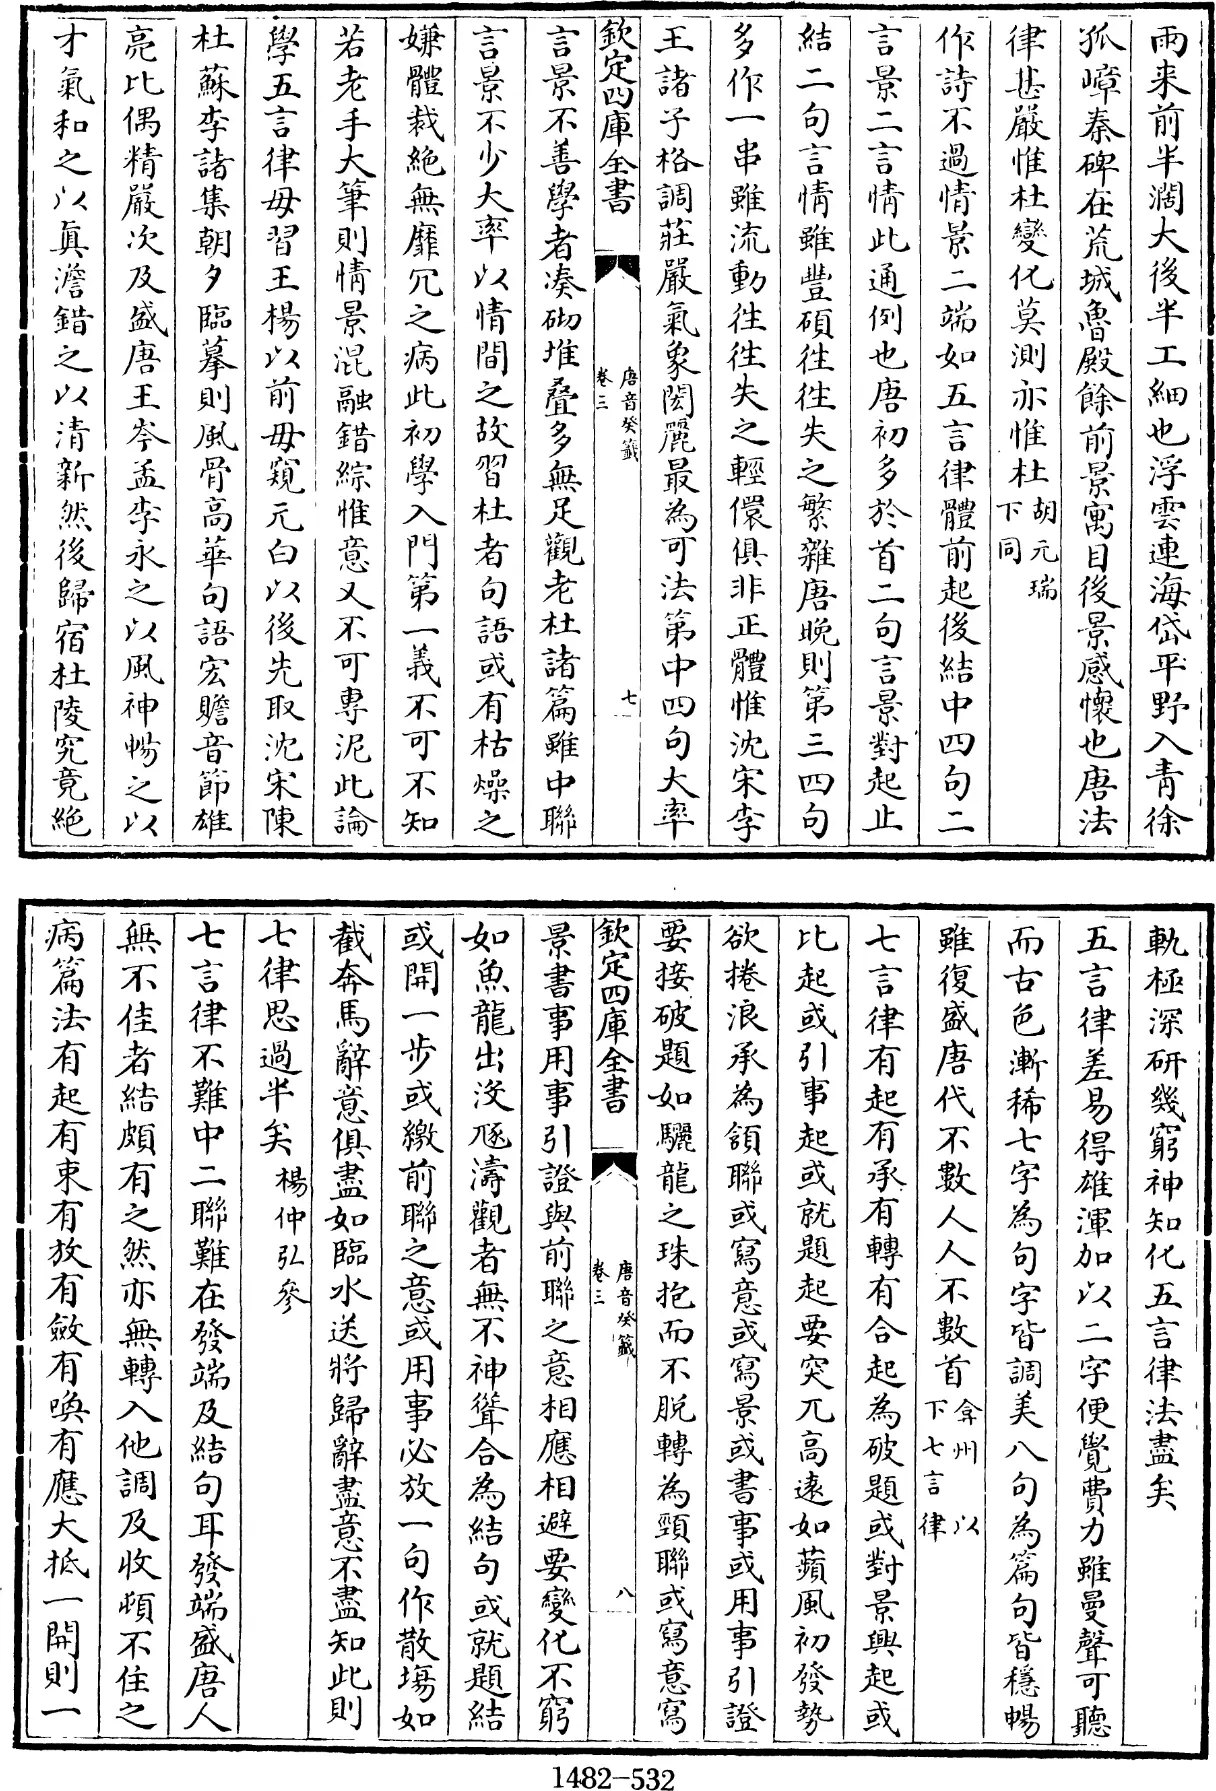 雨来前半濶大後半工細也浮雲連海岱平野入青徐
孤嶂秦碑在荒城魯殿餘前景寓目後景感懷也唐法
律甚嚴惟杜變化莫測亦惟杜胡元瑞下同
作詩不過情景二端如五言律體前起後結中四句二
言景二言情此通例也唐初多於首二句言景對起止
結二句言情雖豐碩徃徃失之繁雜唐晚則第三四句
多作一串雖流動徃徃失之輕儇俱非正體惟沈宋李
王諸子格調莊嚴氣象閎麗最為可法第中四句大率
欽定四庫全書
唐音癸籤
卷三
七
言景不善學者凑砌堆疊多無足觀老杜諸篇雖中聯
言景不少大率以情間之故習杜者句語或有枯燥之
嫌體裁絶無靡冗之病此初學入門第一義不可不知
若老手大筆則情景混融錯綜惟意又不可專泥此論
學五言律毋習王楊以前毋窺元白以後先取沈宋陳
杜蘇李諸集朝夕臨摹則風骨高華句語宏贍音節雄
亮比偶精嚴次及盛唐王岑孟李永之以風神暢之以
才氣和之以真澹錯之以清新然後歸宿杜陵究竟絶
軌極深研幾窮神知化五言律法盡矣
五言律差易得雄渾加以二字便覺費力雖曼聲可聽
而古色漸稀七字為句字皆調美八句為篇句皆穩暢
雖復盛唐代不數人人不數首弇州 以下七言律
七言律有起有承有轉有合起為破題或對景興起或
比起或引事起或就題起要突兀高遠如蘋風初發勢
欲捲浪承為頷聯或寫意或寫景或書事或用事引證
要接破題如驪龍之珠抱而不脱轉為頸聯或寫意寫
欽定四庫全書
唐音癸籤
卷三
八
景書事用事引證與前聯之意相應相避要變化不窮
如魚龍出没豗濤觀者無不神聳合為結句或就題結
或開一步或繳前聯之意或用事必放一句作散塲如
截奔馬辭意俱盡如臨水送將歸辭盡意不盡知此則
七律思過半矣楊仲弘參
七言律不難中二聯難在發端及結句耳發端盛唐人
無不佳者結頗有之然亦無轉入他調及收頓不住之
病篇法有起有束有放有斂有喚有應大抵一開則一
1482-532